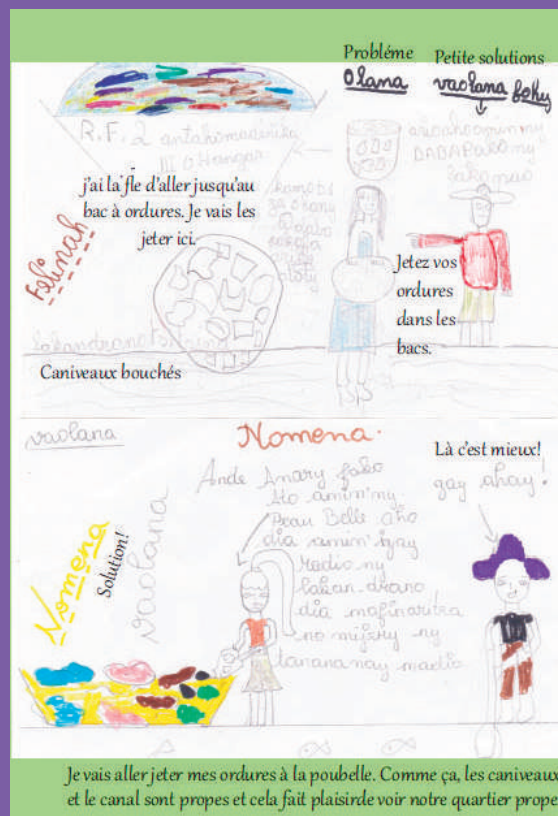 Problème
Petite solutions
Olana
vaolana foky
R.F.2 antohomadinika
III G Hangar
DABA
j'ai la fle d'aller jusqu'au
bac à ordures. Je vais les
jeter ici.
Felinah
Jetez vos
ordures
dans les
bacs.
Caniveaux bouchés
vaolana
Nomena.
Là c'est mieux!
gay ahay!
Ande Anary fako
Ito amin'ny
Beau Belle año
dia amin'izay
Madio ny
lakan-drano
dia mafinaritra
no mijery ny
tanana nay madio
Nomena
Solution!
vaolana
Je vais aller jeter mes ordures à la poubelle. Comme ça, les caniveaux
et le canal sont propes et cela fait plaisirde voir notre quartier prope